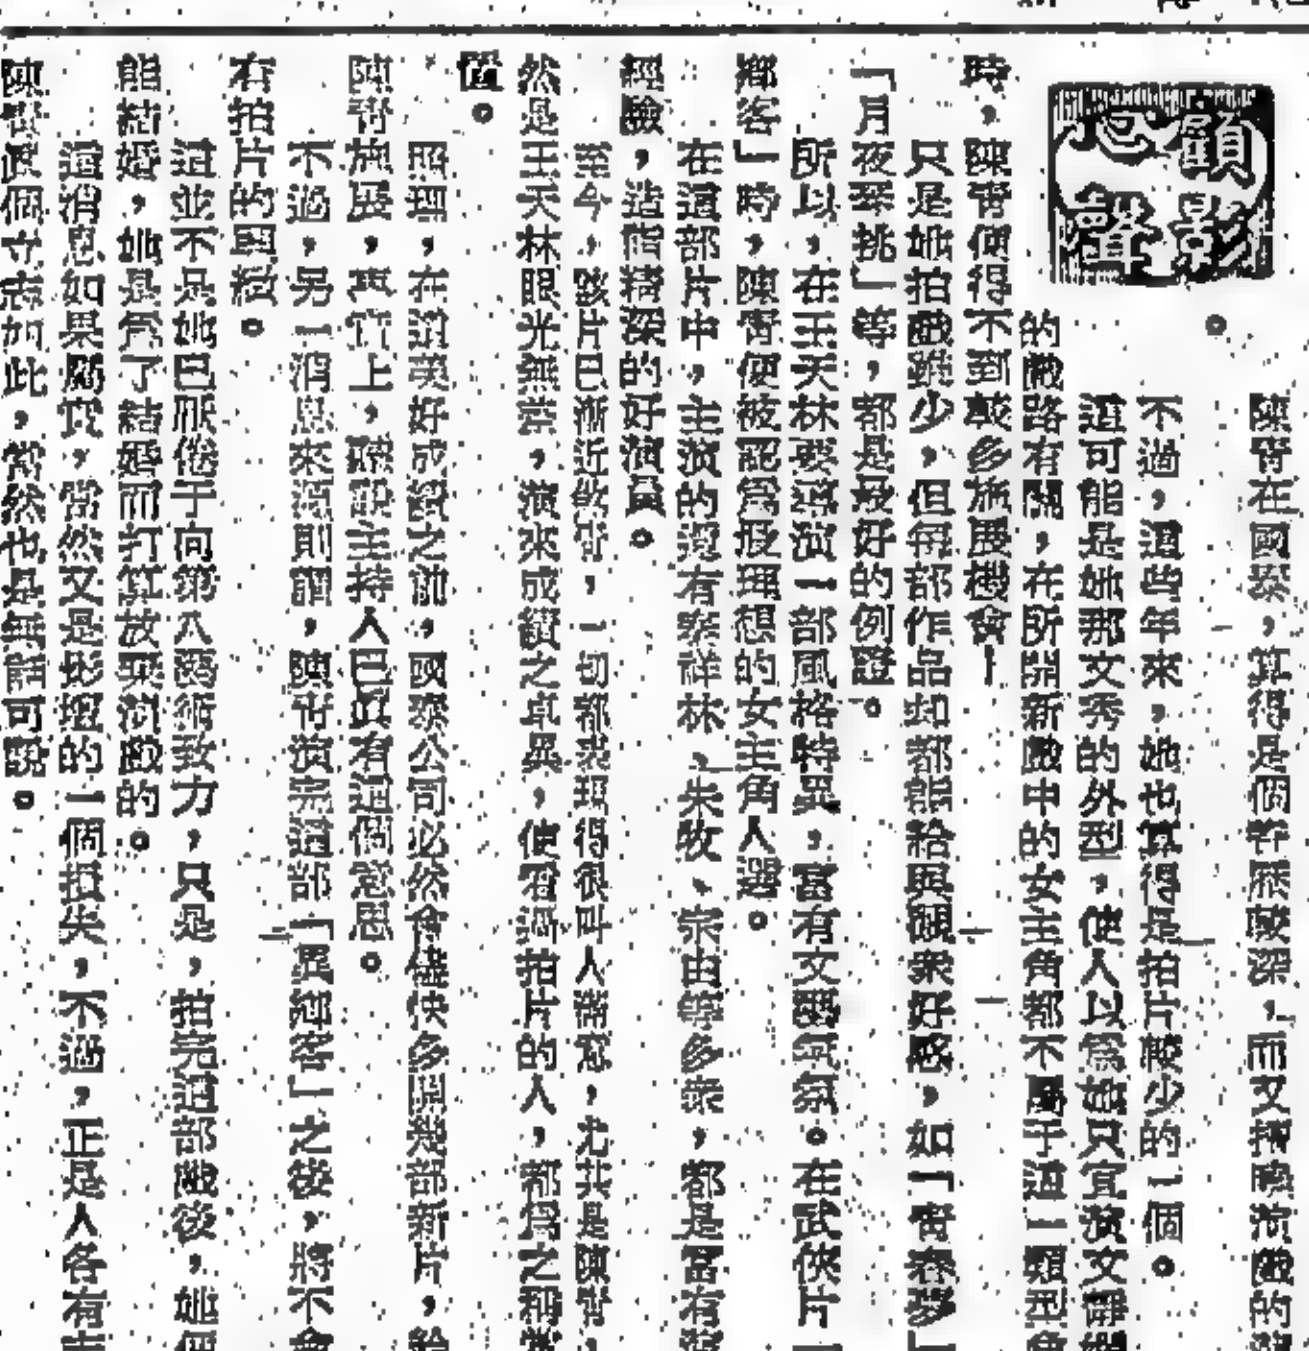 顧影
心聲
陳青在國泰,算得是個資歷較深,而又擅曉演戲的
。
不過,這些年來,她也算得是拍片較少的一個。
這可能是她那文秀的外型,使人以為她只宜演文靜
的戲路有關,在所開新戲中的女主角都不屬于這一類型
時,陳青便得不到較多施展機會—
只是她拍戲雖少,但每部作品却都能給與觀衆好感,如「青春夢」
「月夜琴挑」等,都是最好的例證。
所以,在王天林要導演一部風格特異,富有文藝氣氛。在武俠片
鄉客」時,陳青便被認為最理想的女主角人選。
在這部片中,主演的還有泰祥林、朱牧、宗由等多衆,都是富有
經驗,造詣精深的好演員。
至今,該片已漸近尾聲,一切都表現得很叫人滿意,尤其是陳青,
然是王天林眼光無差,演來成績之卓異,使看過拍片的人,都為之稱
置。
照理,在這美好成績之前,國泰公司必然會儘快多開幾部新片,給
陳青施展,事實上,聽說主持人已真有這個意思。
不過,另一消息來源則謂,陳青演完這部「異鄉客」之後,將不會
有拍片的興緻。
這並不是她已厭倦于向第八藝術致力,只是,拍完這部戲後,她便
能結婚,她是為了結婚而打算放棄演戲的。
這消息如果屬實,當然又是影壇的一個損失,不過,正是人各有志
陳青既個立志如此,當然也是無話可說。